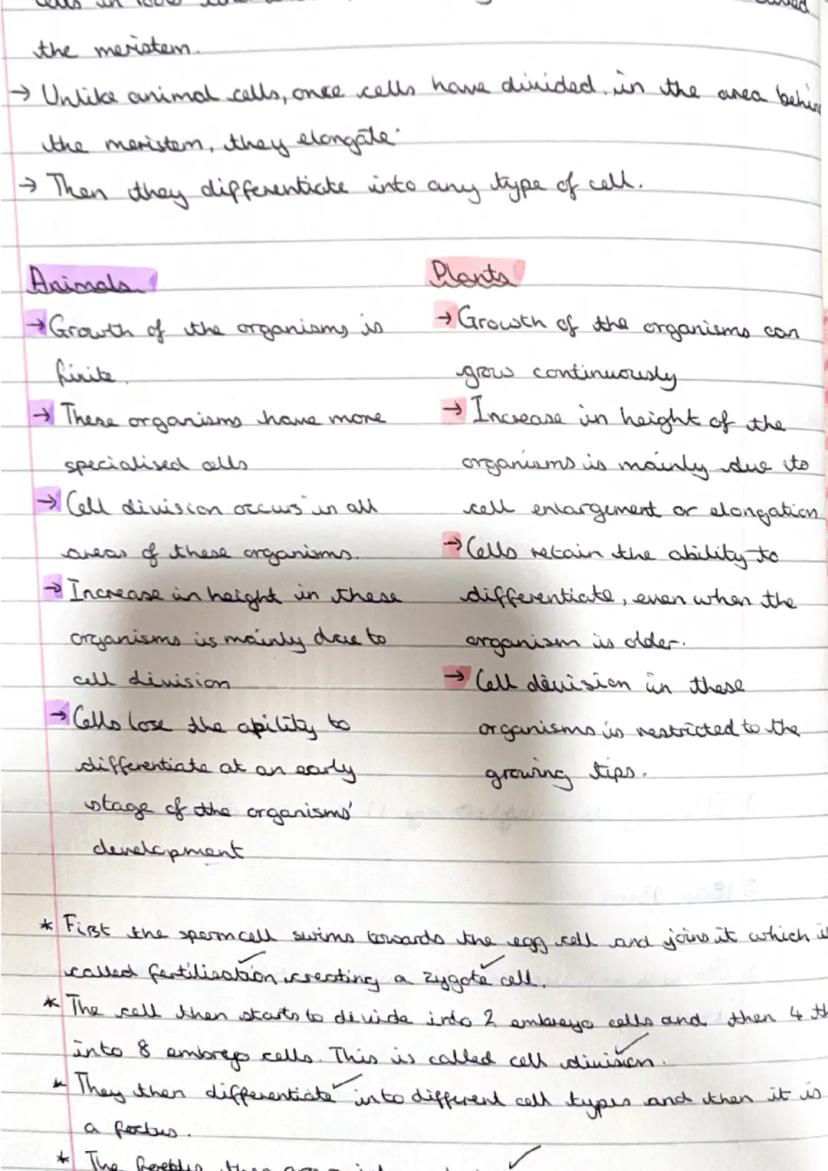 the meristem.
→ Unlike animal cells, once cells have divided, in the area behin
the meristem, they elongate.
→ Then they differentiate into any type of cell.
Animals
→ Growth of the organisms is
finite.
→ These organisms have more
specialised cells
→ Cell division occurs in all
areas of these organisms.
→ Increase in height in these
organisms is mainly due to
cell division
→ Cells lose the ability to
differentiate at an early
stage of the organisms'
development
Plants
→ Growth of the organisms can
grow continuously
→ Increase in height of the
organisms is mainly due to
cell enlargement or elongation
→ Cells retain the ability to
differentiate, even when the
organism is older.
→ Cell division in these
organisms is restricted to the
growing tips.
* First the sperm cell swims towards the egg cell and joins it which i
called fertilisation creating a zygote cell.
* The cell then starts to divide into 2 embreyo cells and then 4 th
into 8 embreyo cells. This is called cell division.
* They then differentiate into different cell types and then it is
a foetus.
* The foetus then